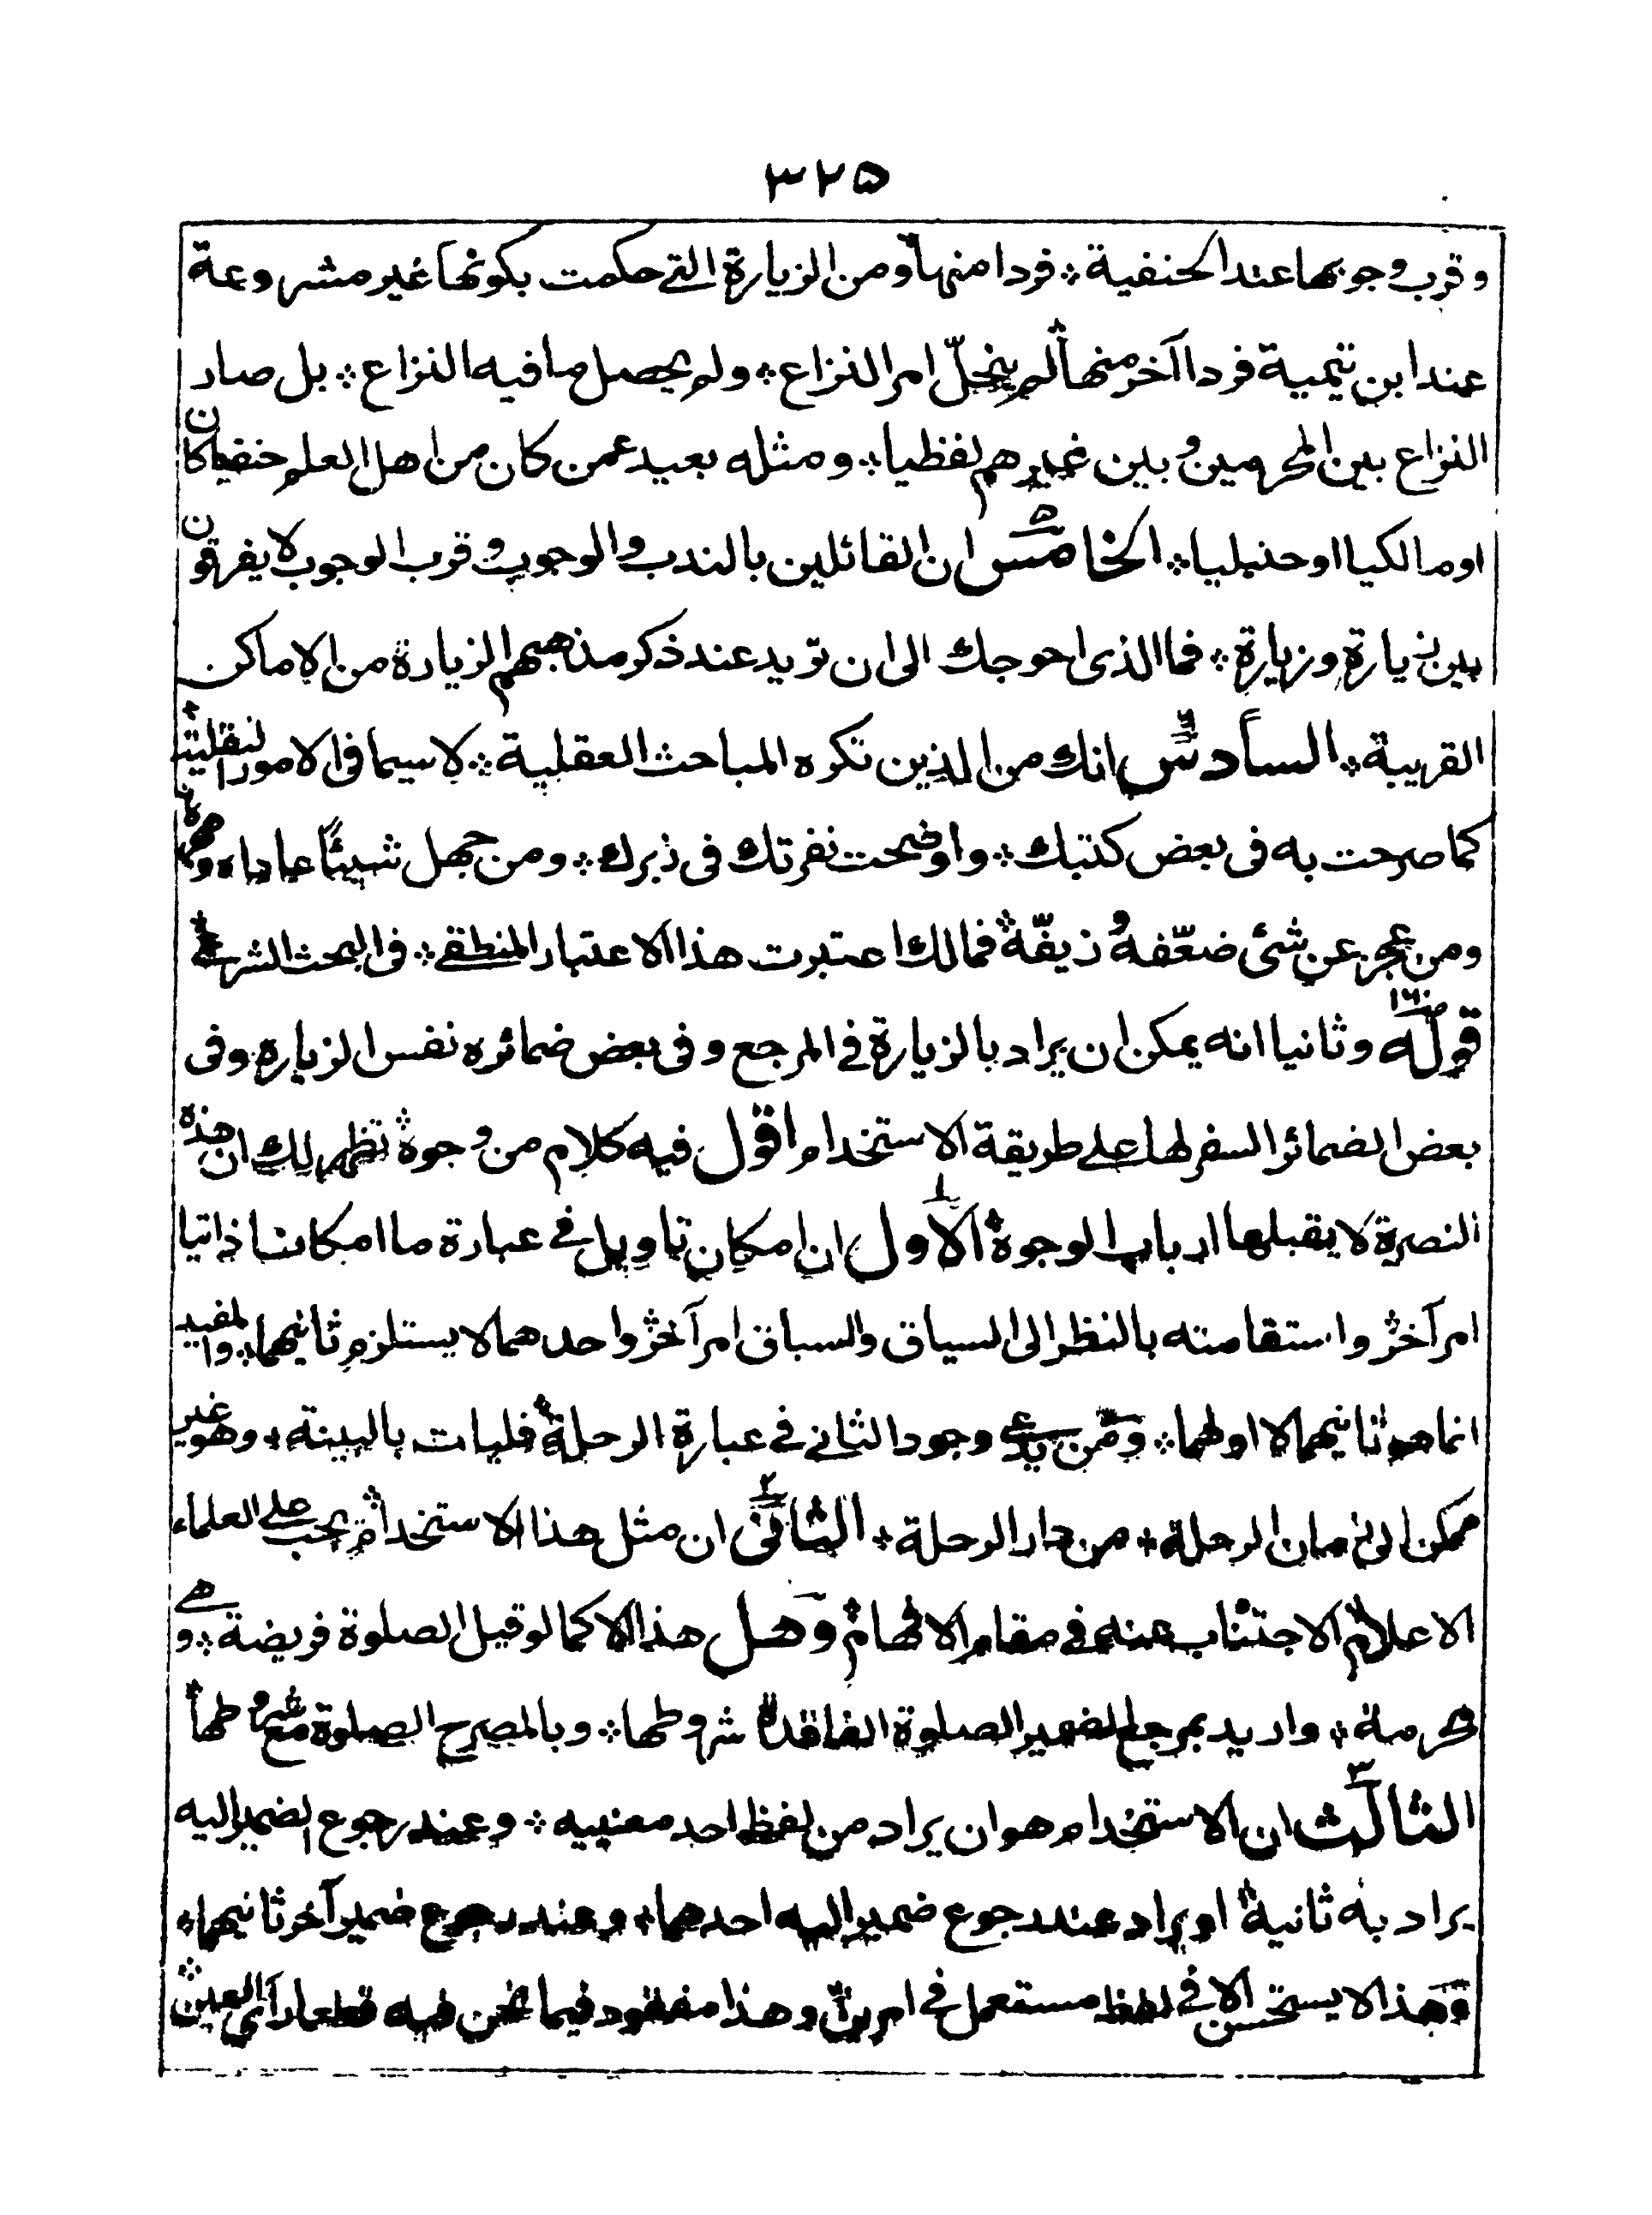 ٣٢٥
وقرب وجوبها عند الحنفية ٭ فردا منها ومن الزيارة التي حكمت بكونها غير مشروعة
عند ابن تيمية فردا آخر منها لم ينجلّ امر النزاع ٭ ولم يحصل ما فيه النزاع ٭ بل صار
النزاع بين المحرمين وبين غيرهم لفظيا ٭ ومثله بعيد عمن كان من اهل العلم حنفيا كان
او مالكيا او حنبليا ٭ الخامس ان القائلين بالندب والوجوب وقرب الوجوب لا يفرقون
بين زيارة وزيارة ٭ فما الذى احوجك الى ان تريد عند ذكر مذاهبهم الزيارة من الاماكن
القريبة ٭ السادس انك من الذين تكره المباحث العقلية ٭ لا سيما فى الامور النقلية
كما صرحت به فى بعض كتبك ٭ واوضحت نفرتك فى زبرك ٭ ومن جهل شيئًا عاداه
ومن عجز عن شئ ضعّفه وزيفّه فمالك اعتبرت هذا الاعتبار المنطقي ٭ فى البحث الشرعي
قوله ص١٦ وثانيا انه يمكن ان يراد بالزيارة في المرجع وفى بعض ضمائره نفس الزيارة وفى
بعض الضمائر السفر لها على طريقة الاستخدام اقول فيه كلام من وجوه تظهر لك ان هذه
النصرة لا يقبلها ارباب الوجوه الاول ١ ان امكان تاويل في عبارة ما امكانا ذاتيا
امر آخر واستقامته بالنظر الى السياق والسباق امر آخر واحدهما لا يستلزم ثانيهما ٭ والمفيد
انما هو ثانيهما لا اولهما ٭ ومن يدعي وجود الثاني في عبارة الرحلة فليات بالبينة ٭ وهو غير
ممكن الى زمان الرحلة ٭ من دار الرحلة ٭ الثاني ٢ ان مثل هذا الاستخدام يجب على العلماء
الاعلام الاجتناب عنه في مقام الافهام وهل هذا الا كما لو قيل الصلوة فريضة ٭ وهي
محرمة ٭ واريد بمرجع الضمير الصلوة الفاقدة شروطها ٭ وبالمصرح الصلوة مع شروطها
الثالث ٣ ان الاستخدام هو ان يراد من لفظ احد معنييه ٭ وعند رجوع الضمير اليه
يراد به ثانيه او يراد عند رجوع ضمير اليه احدهما ٭ وعند رجوع ضمير آخر ثانيهما ٭
وهذا لا يستحسن الا في لفظ مستعمل في امرين وهذا مفقود فيما نحن فيه قطعا رأي العين